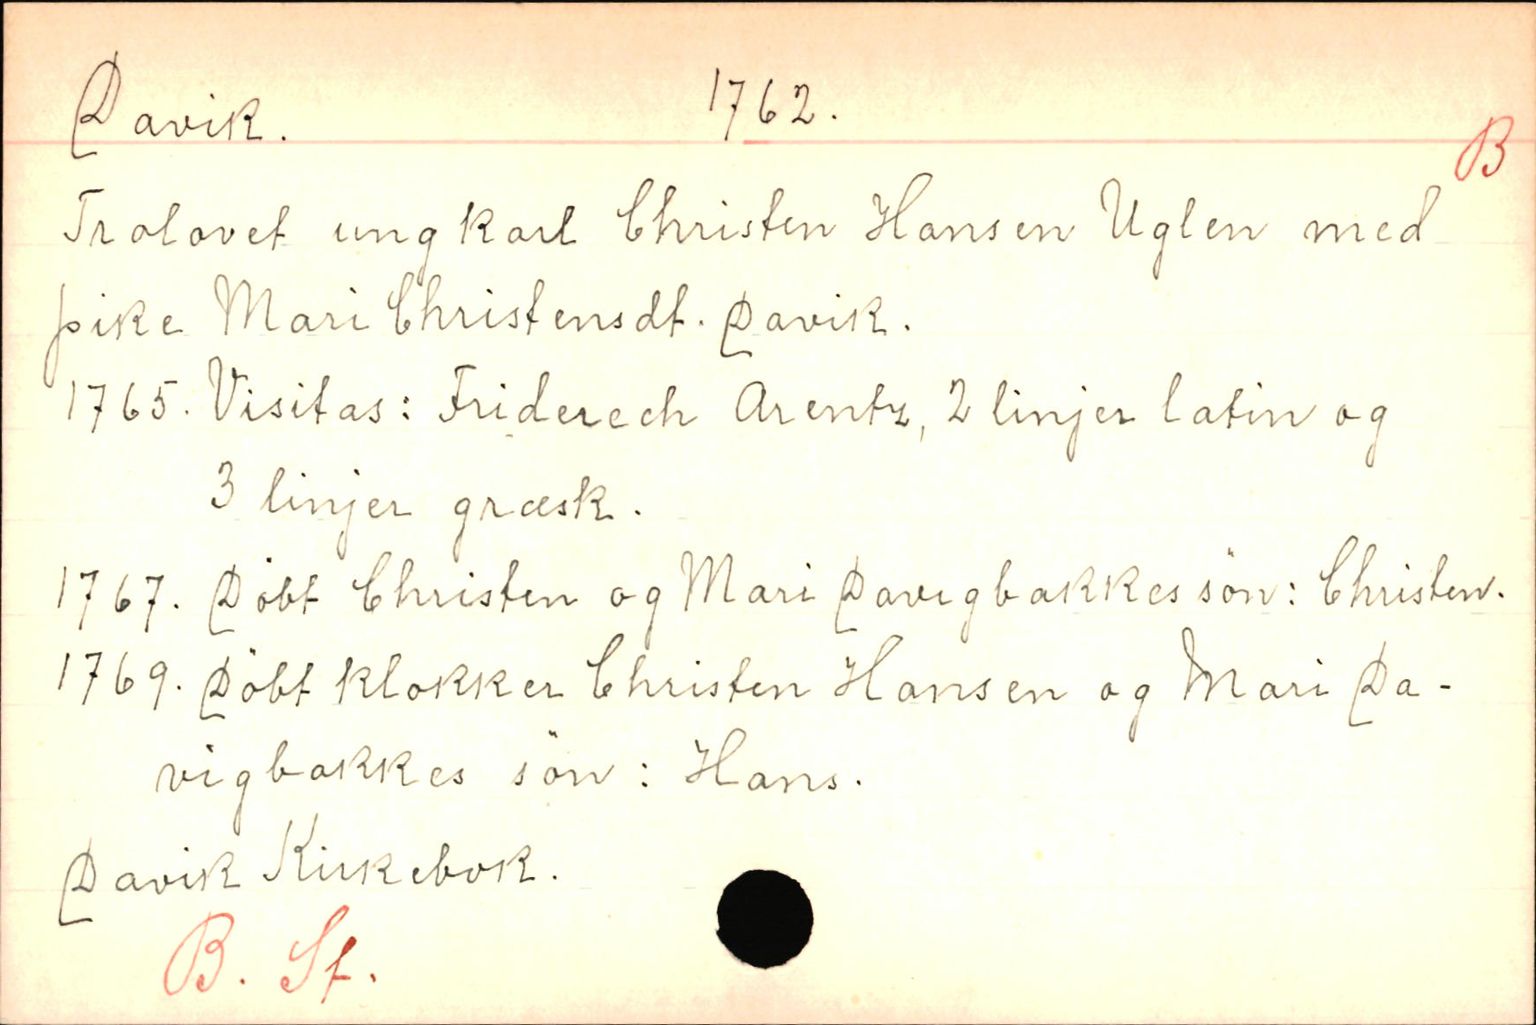 Davik. 1762.
B
Trolovet ungkarl Christen Hansen Uglen med
pike Mari Christensdt. Davik.
1765. Visitas: Friderech Arentz, 2 linjer latin og
3 linjer græsk.
1767. Döbt Christen og Mari Davigbakkes sön: Christen.
1769. Döbt klokker Christen Hansen og Mari Da-
vigbakkes sön: Hans.
Davik Kirkebok.
B. St.